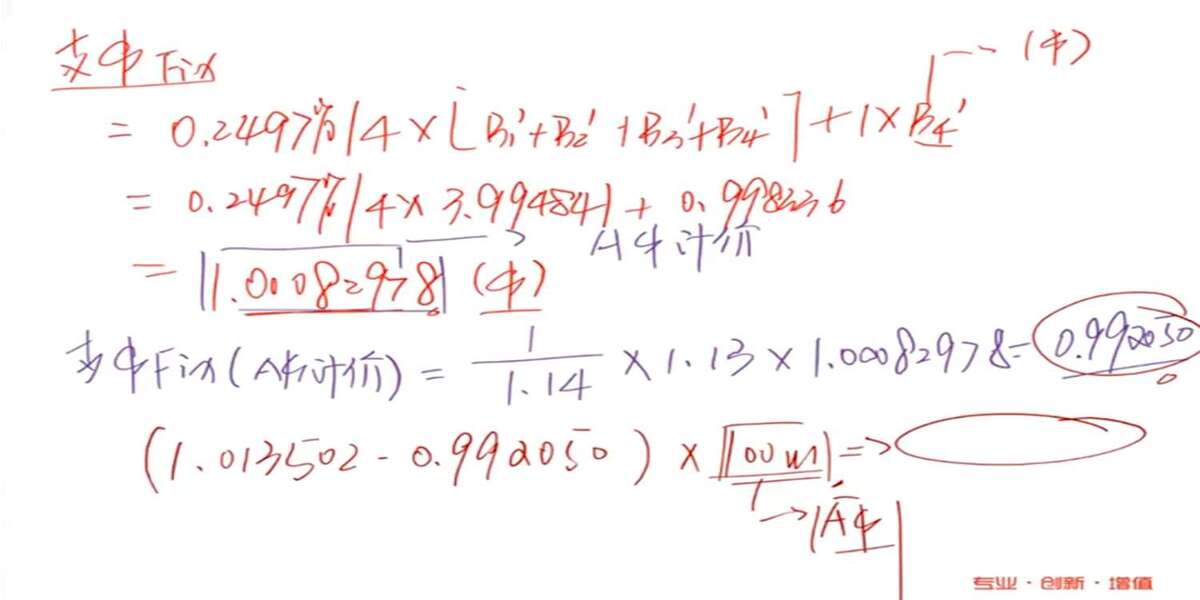 支$ Fix ---(￠)
= 0.2497%/4×[B₁'+B₂'+B₃'+B₄']+1×B₄'
= 0.2497%/4×3.994841+0.998336
A$计价
= 1.00082978 (￠)
支￠Fix(A$计价) = 1/1.14 × 1.13 × 1.00082978 = 0.992050
(1.013502 - 0.992050) × 100m =>
→ A$
专业·创新·增值